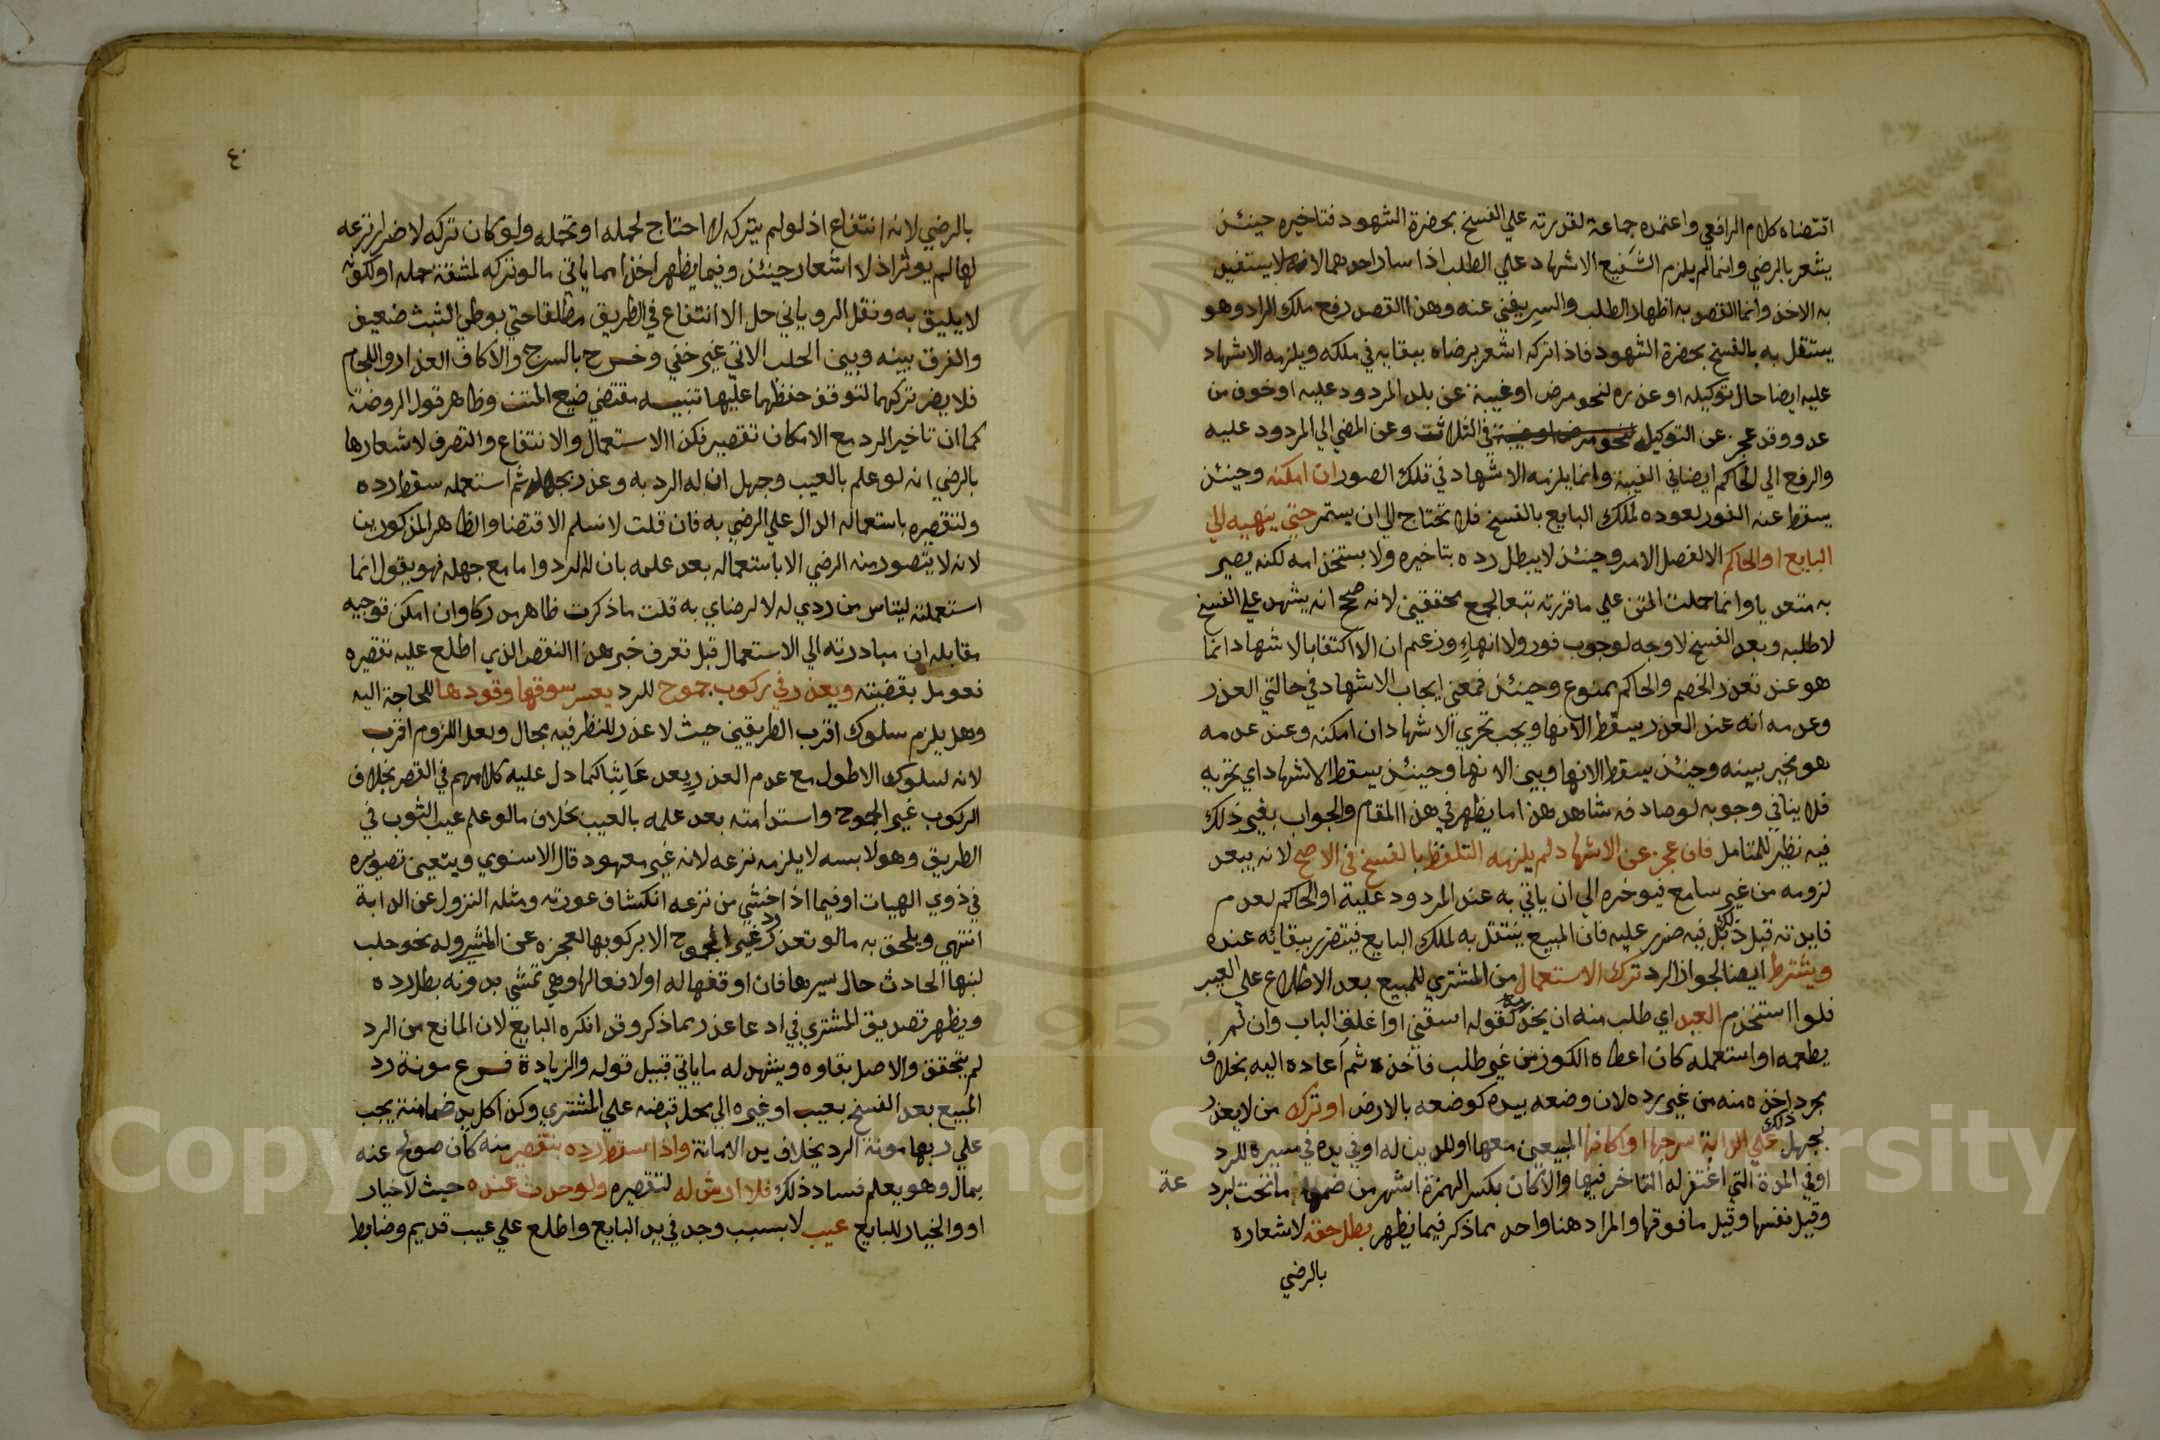 اقتضاه كلام الرافعي واعتمده جماعة لقدرته علي الفسخ بحضرة الشهود فتاخيره حينئذ
يشعر بالرضي وانما لم يلزم الشفيع الاشهاد علي الطلب اذا سار احدهما لانه لا يستفيد
به الاخذ وانما القصد به اظهار الطلب والسير يغني عنه وهنا القصد رفع ملك الراد وهو
يستقل به بالفسخ بحضرة الشهود فاذا تركه اشعر برضاه ببقايه في ملكه ويلزمه الاشهاد
عليه ايضا حال توكيله او عذره لنحو مرض او غيبة عن بلد المردود عليه او خوف من
عدو وقد عجز عن التوكيل في الثلاث وعن المضي الي المردود عليه
والرفع الي الحاكم ايضا في الغيبة وانما يلزمه الاشهاد في تلك الصور ان امكنه وحينئذ
يسقط عنه الفور لعوده لملك البايع بالفسخ فلا تحتاج الي ان يستمر حتي ينهيه الي
البايع او الحاكم الا لفصل الامر وحينئذ لا يبطل رده بتاخيره ولا بستخدامه لكنه يصير
به متعديا وانما حملت المتن علي ما قررته تبعا لجمع محققين لانه صحح انه يشهد علي الفسخ
لا طلبه وبعد الفسخ لا وجه لوجوب فور ولا انهاء وزعم ان الاكتفا بالاشهاد انما
هو عند تعذر الخصم والحاكم ممنوع وحينئذ فمعني ايجاب الاشهاد في حالتي العذر
وعدمه انه عند العذر يسقط الانها ويجب تحري الاشهاد ان امكنه وعند عدمه
هو مخير بينه وحينئذ يسقط الانها وبين الانها وحينئذ يسقط الاشهاد اي تحريه
فلا ينافي وجوبه لو صادفه شاهد هذا ما يظهر في هذا المقام والجواب بغير ذلك
فيه نظر للمتامل فان عجز عن الاشهاد لم يلزمه التلفظ بالفسخ في الاصح لانه يبعد
لزومه من غير سامع فيوخره الي ان ياتي به عند المردود عليه او الحاكم لعدم
فايدته قبل ذلك بل فيه ضرر عليه فان المبيع ينتقل به لملك البايع فيتضرر ببقائه عنده
ويشترط ايضا لجواز الرد ترك الاستعمال من المشتري للمبيع بعد الاطلاع علي العيب
فلو استخدم العبد اي طلب منه ان يخدمه كقوله اسقني او اغلق الباب وان لم
يطعه او استعمله كان اعطاه الكوز من غير طلب فاخذه ثم اعاده اليه بخلاف
مجرد اخذه منه من غير رده لان وضعه بيده كوضعه بالارض او ترك من لا يعذر
بجهل ذلك علي الدابة سرجها او اكافها المبيعين معها او للذين له او في يده في مسيره للرد
او في المدة التي اغتفر له التاخر فيها والاكاف بكسر الهمزة اشهر من ضمها ما تحت البرد
عة
وقيل نفسها وقيل ما فوقها والمراد هنا واحد مما ذكر فيما يظهر بطل حقه لاشعاره
بالرضي
٤٠
بالرضي لانه انتفاع اذ لو لم يتركه لاحتاج لحمله او تحمله ولو كان تركه لاضرار نزعه
لها لم يوثر اذ لا اشعار حينئذ وفيما يظهر اخذا مما ياتي ما لو تركه لمشقة حمله او لكونه
لا يليق به ونقل الروياني حل الانتفاع في الطريق مطلقا حتي بوطي الثيب ضعيف
والفرق بينه وبين الحلب الاتي غير خفي وخرج بالسرج والاكاف العذار واللجام
فلا يضر تركهما لتوقف حفظهما عليها تنبيه مقتضي صنيع المتن وظاهر قول الروضة
كما ان تاخير الرد مع الامكان تقصير فكذا الاستعمال والانتفاع والتصرف لاشعارها
بالرضي انه لو علم بالعيب وجهل ان له الرد به وعذر بجهله ثم استعمله سقط رده
ولتقصيره باستعماله الدال علي الرضي به فان قلت لا نسلم الاقتضا والظاهر المذكورين
لانه لا يتصور منه الرضي الا باستعماله بعد علمه بان له الرد واما مع جهله فهو يقول انما
استعملته لياس من ردي له لا لرضاي به قلت ما ذكرت ظاهر مدركا وان امكن توجيه
مقابله ان مبادرته الي الاستعمال قبل تعرف خبر هذا النقص الذي اطلع عليه تقصيره
فعومل بقضيته ويعذر في ركوب جموح للرد يعسر سوقها وقودها للحاجة اليه
وهل يلزم سلوك اقرب الطريقين حيث لا عذر للنظر فيه مجال ولعل اللزوم اقرب
لانه لسلوك الاطول مع عدم العذر يعد عابثا كما دل عليه كلامهم في القصر بخلاف
الركوب غير الجموح واستدامته بعد علمه بالعيب بخلاف ما لو علم عيب الثوب في
الطريق وهو لابسه لا يلزمه نزعه لانه غير معهود قال الاسنوي ويتعين تصويره
في ذوي الهيات او فيما اذا خشي من نزعه انكشاف عورته ومثله النزول عن الدابة
انتهي ويلحق به ما لو تعذر رد غير الجموح الا بركوبها لعجزه عن المشي وله نحو حلب
لبنها الحادث حال سيرها فان اوقفها له او لانعالها وهي تمشي بدونه بطل رده
ويظهر تصديق المشتري في ادعا عذر مما ذكر وقد انكره البايع لان المانع من الرد
لم يتحقق والاصل بقاوه ويشهد له ما ياتي قبيل قوله والزيادة فرع مونة رد
المبيع بعد الفسخ بعيب او غيره الي محل قبضه علي المشتري وكذا كل يد ضامنة يجب
علي ربها مونة الرد بخلاف يد الامانة واذا سقط رده بتقصير منه كان صولح عنه
بمال وهو يعلم فساد ذلك فلا ارش له لتقصيره ولو حدث عنده حيث لا خيار
او والخيار للبايع عيب لا بسبب وجد في يد البايع واطلع علي عيب قديم وضابط